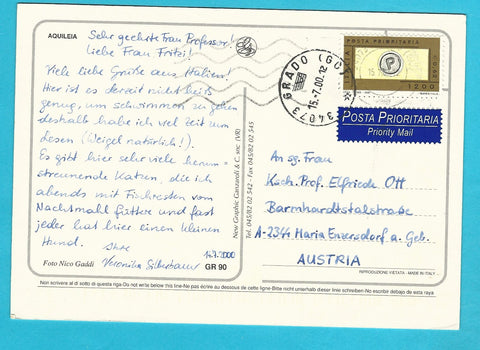 AQUILEIA
Sehr geehrte Frau Professor!
Liebe Frau Fritzi!
Viele liebe Grüße aus Italien!
Hier ist es derzeit nicht heiß
genug, um schwimmen zu gehen
deshalb habe ich viel Zeit zum
Lesen (Weigel natürlich!).
Es gibt hier sehr viele herum-
streunende Katzen, die ich
abends mit Fischresten vom
Nachtmahl füttere und fast
jeder hat hier einen kleinen
Hund.
Ihre
Veronika Silberbauer
Foto Nico Gaddi
GR 90
New Graphic Ganzaroli & C. snc (VR)
Tel. 045/82 02 542 - Fax 045/82 02 545
34073 GRADO (GO)
15.-7.00.12
POSTA PRIORITARIA
ITALIA
1200
POSTA PRIORITARIA
Priority Mail
An sg. Frau
Ksch. Prof. Elfriede Ott
Barmhardtstalstraße
A-2344 Maria Enzersdorf a. Geb.
AUSTRIA
RIPRODUZIONE VIETATA - MADE IN ITALY
Non scrivere al disotto di questa riga-Do not write below this line-Ne pas écrire au dessous de cette ligne-Bitte nicht unterhalb dieser linie schreiben-No escribir debajo de esta raya